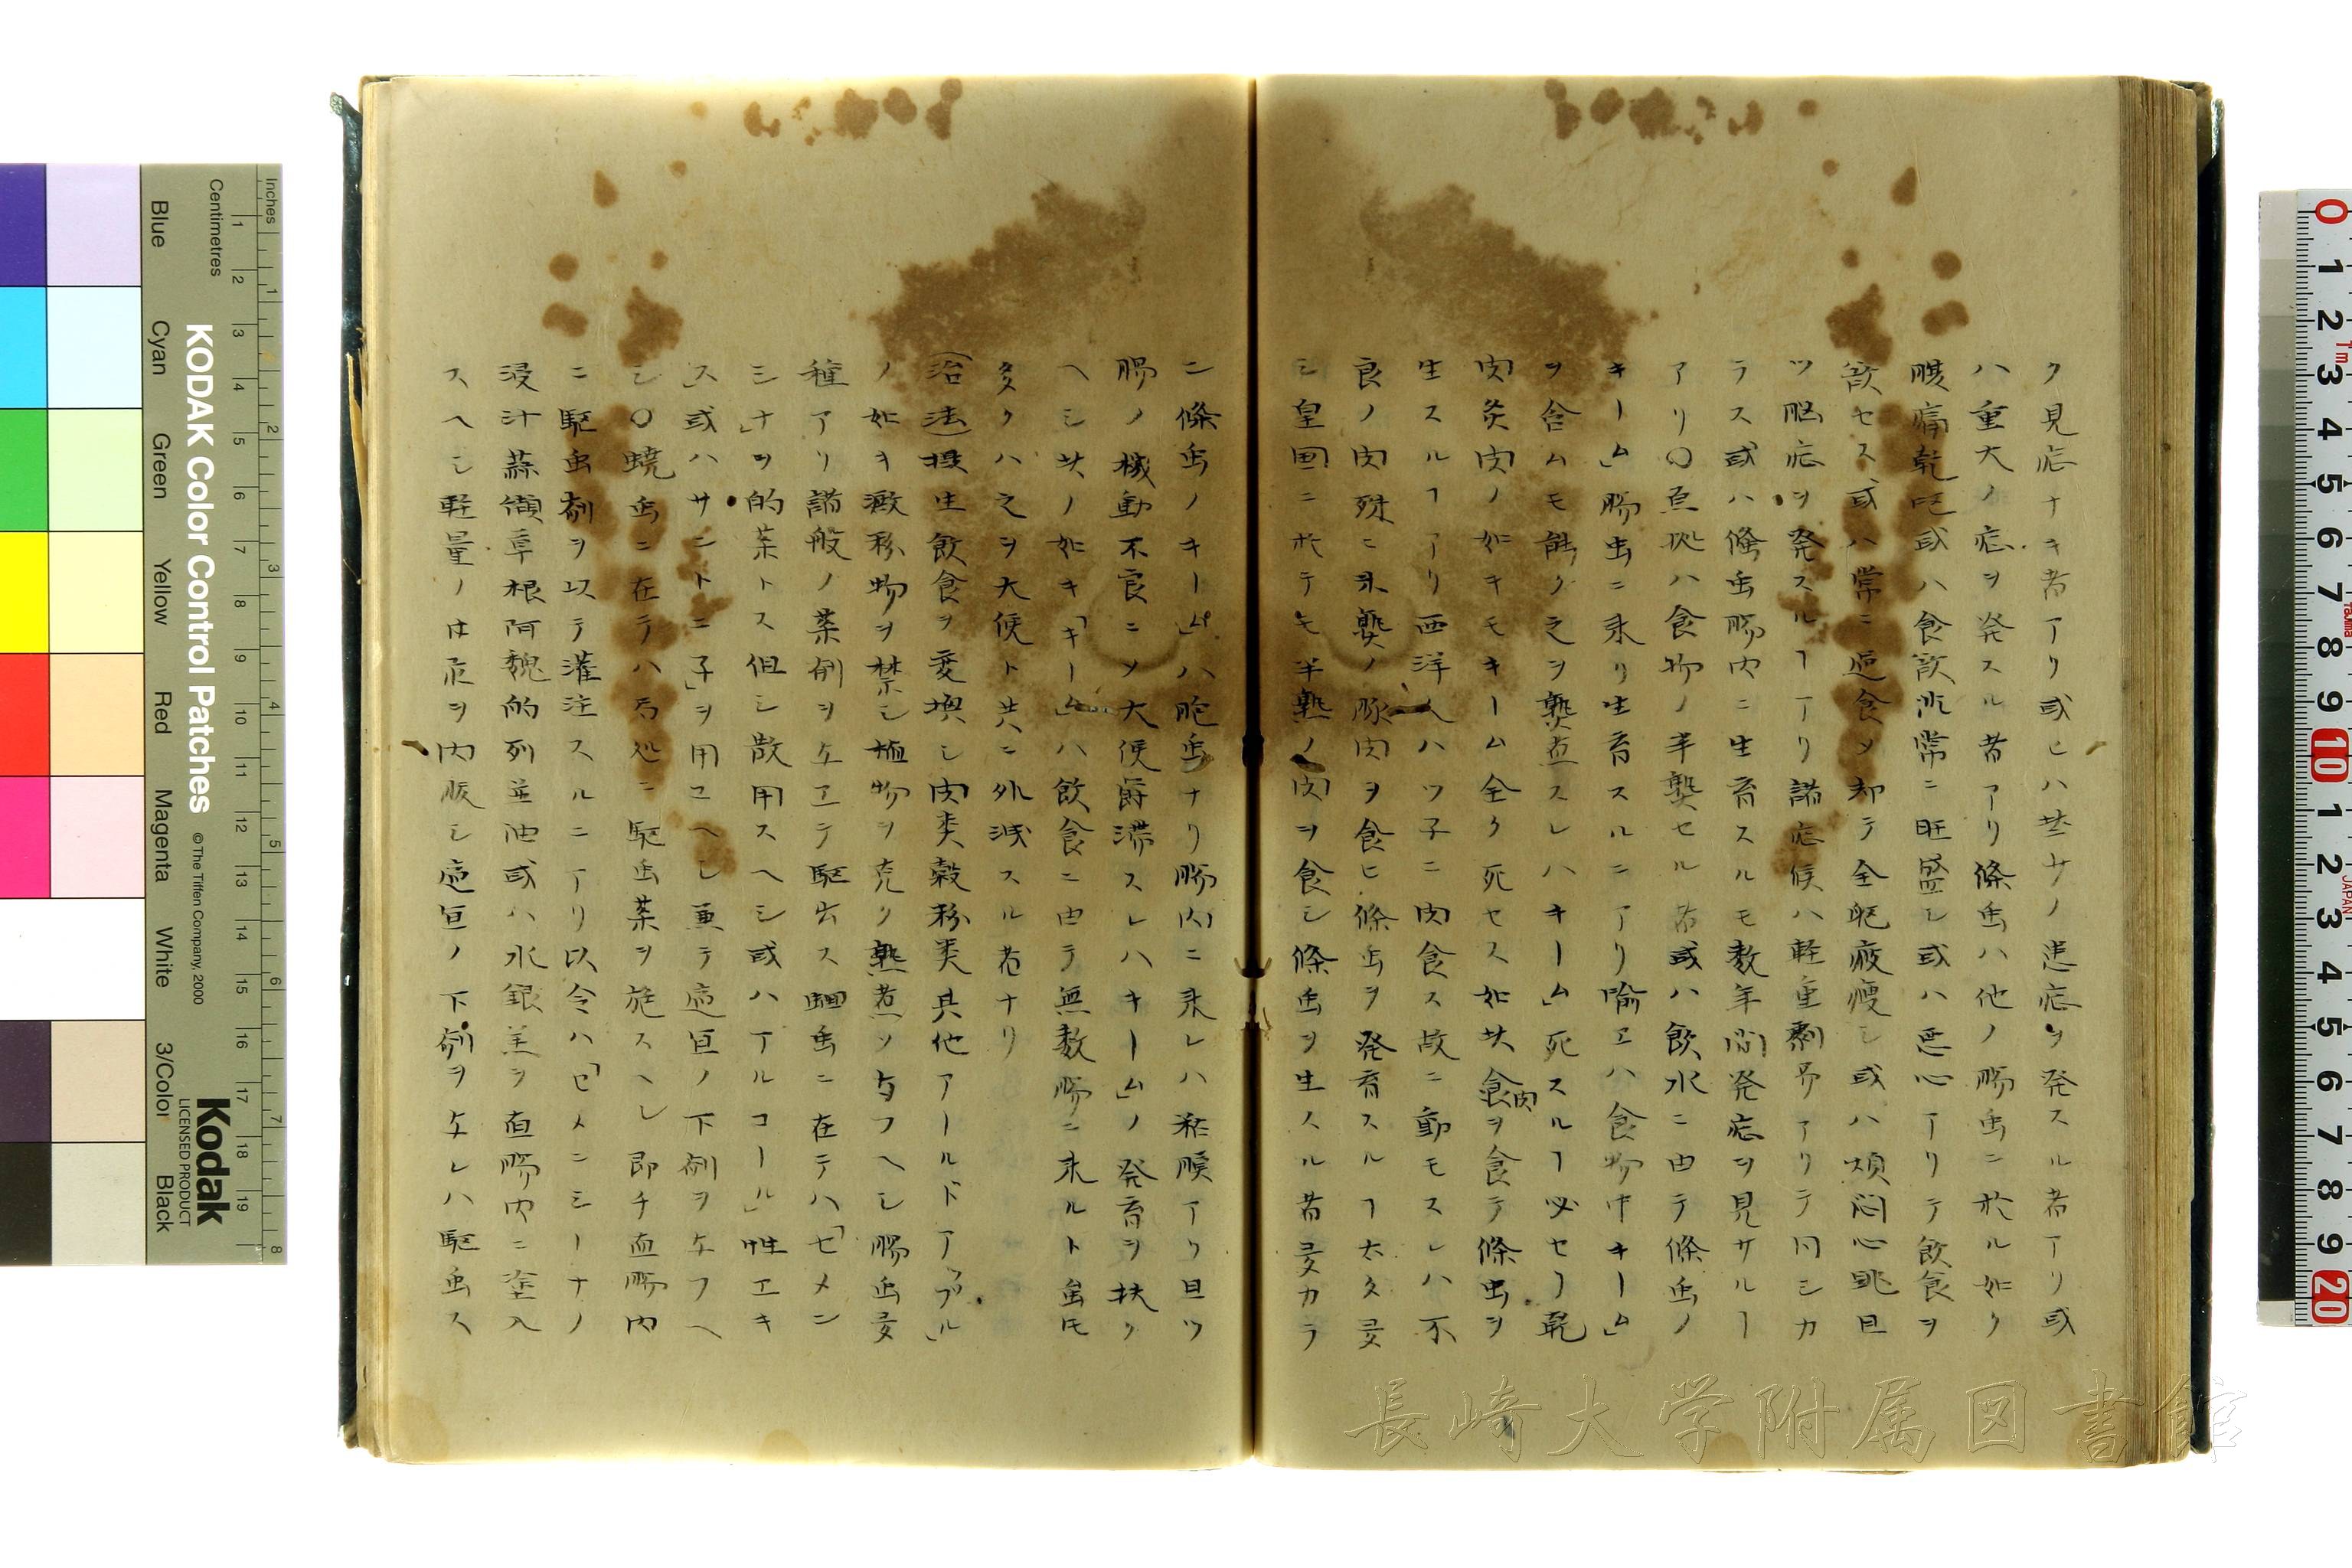 ク見症ナキ者アリ或ヒハ甚サノ患症ヲ発スル者アリ或
ハ重大ノ症ヲ発スル者アリ條虫ハ他ノ腸虫ニ於ル如ク
腹痛乾呕或ハ食飲非常ニ旺盛シ或ハ悪心アリテ飲食ヲ
欲セス或ハ常ニ過食メ却テ全躯疲痩シ或ハ煩悶心跳且
ツ脳症ヲ発スルヿアリ諸症候ハ軽重劇易アリテ同シカ
ラス或ハ條虫腸内ニ生育スルモ数年間発症ヲ見サルヿ
アリ〇原由ハ食物ノ半熟セル者或ハ飲水ニ由テ條虫ノ
キーム」腸虫ニ来リ生育スルニアリ喩エハ食物中キーム」
ヲ含ムモ能ク之ヲ熟煮スレハキーム」死スルヿ必セリ乾
肉炙肉ノ如キモキーム全ク死セス如此食肉ヲ食テ條虫ヲ
生スルヿアリ西洋人ハツ子ニ肉食ス故ニ動モスレハ不
良ノ肉殊ニ未熟ノ豚肉ヲ食ヒ條虫ヲ発育スルヿ太タ多
シ皇国ニ於テモ半熟ノ肉ヲ食シ條虫ヲ生スル者多カラ
ニ條虫ノキーム」ハ胞虫ナリ腸内ニ来レハ粘膜アリ且ツ
腸ノ機動不良ニメ大便欝滞スレハキーム」ノ発育ヲ扶ク
ヘシ此ノ如キ「キーム」ハ飲食ニ由テ無数腸ニ来ルト虽𪜈
多クハ之ヲ大便ト共ニ外泄スル者ナリ
(治法)摂生飲食ヲ変換シ肉类穀粉类其他アールドアップル」
ノ如キ澱粉物ヲ禁シ植物ヲ克ク熟煮メ与フヘシ腸虫多
種アリ諸般ノ薬剤ヲ与エテ駆出ス蛔虫ニ在テハ「セメン
シナ」ヲ的薬トス但シ散用スヘシ或ハアルコール」性エキ
ス或ハサントニ子」ヲ用ユヘシ兼テ適宜ノ下剤ヲ与フヘ
シ〇蟯虫ニ在テハ局処ニ駆虫薬ヲ施スヘシ即チ直腸内
ニ駆虫剤ヲ以テ灌注スルニアリ以令ハ「セメンシーナノ
浸汁蒜纈草根阿魏的列並油或ハ水銀羔ヲ直腸内ニ塗入
スヘシ軽量ノ甘汞ヲ内服シ適宜ノ下剤ヲ与レハ駆虫ス
Inches
Centimetres
KODAK Color Control Patches
© The Tiffen Company, 2000
Kodak
LICENSED PRODUCT
Blue
Cyan
Green
Yellow
Red
Magenta
White
3/Color
Black
長崎大学附属図書館
JAPAN